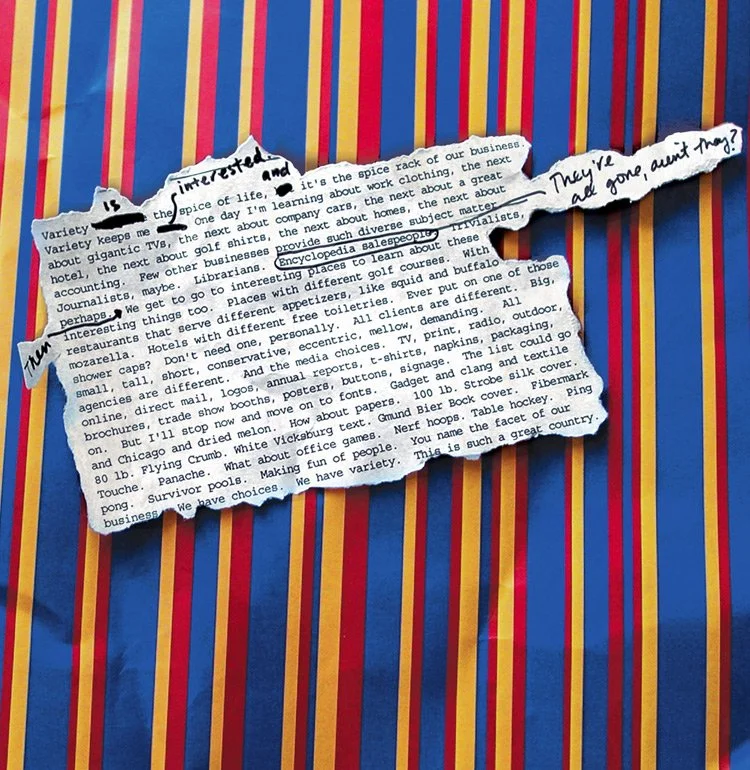 interested.
is
and
Variety the spice of life, it's the spice rack of our business.
Variety keeps me One day I'm learning about work clothing, the next
about gigantic TVs, the next about company cars, the next about a great
hotel, the next about golf shirts, the next about homes, the next about
accounting. Few other businesses provide such diverse subject matter
Journalists, maybe. Librarians. Encyclopedia salespeople Trivialists,
perhaps. We get to go to interesting places to learn about these
interesting things too. Places with different golf courses. With
restaurants that serve different appetizers, like squid and buffalo
mozarella. Hotels with different free toiletries. Ever put on one of those
shower caps? Don't need one, personally. All clients are different. Big,
small, tall, short, conservative, eccentric, mellow, demanding. All
agencies are different. And the media choices. TV, print, radio, outdoor,
online, direct mail, logos, annual reports, t-shirts, napkins, packaging,
brochures, trade show booths, posters, buttons, signage. The list could go
on. But I'll stop now and move on to fonts. Gadget and clang and textile
and Chicago and dried melon. How about papers. 100 lb. Strobe silk cover.
80 lb. Flying Crumb. White Vicksburg text. Gmund Bier Bock cover. Fibermark
Touche. Panache. What about office games. Nerf hoops. Table hockey. Ping
pong. Survivor pools. Making fun of people. You name the facet of our
business. We have choices. We have variety. This is such a great country.
They're
all gone, aren't they?
Then